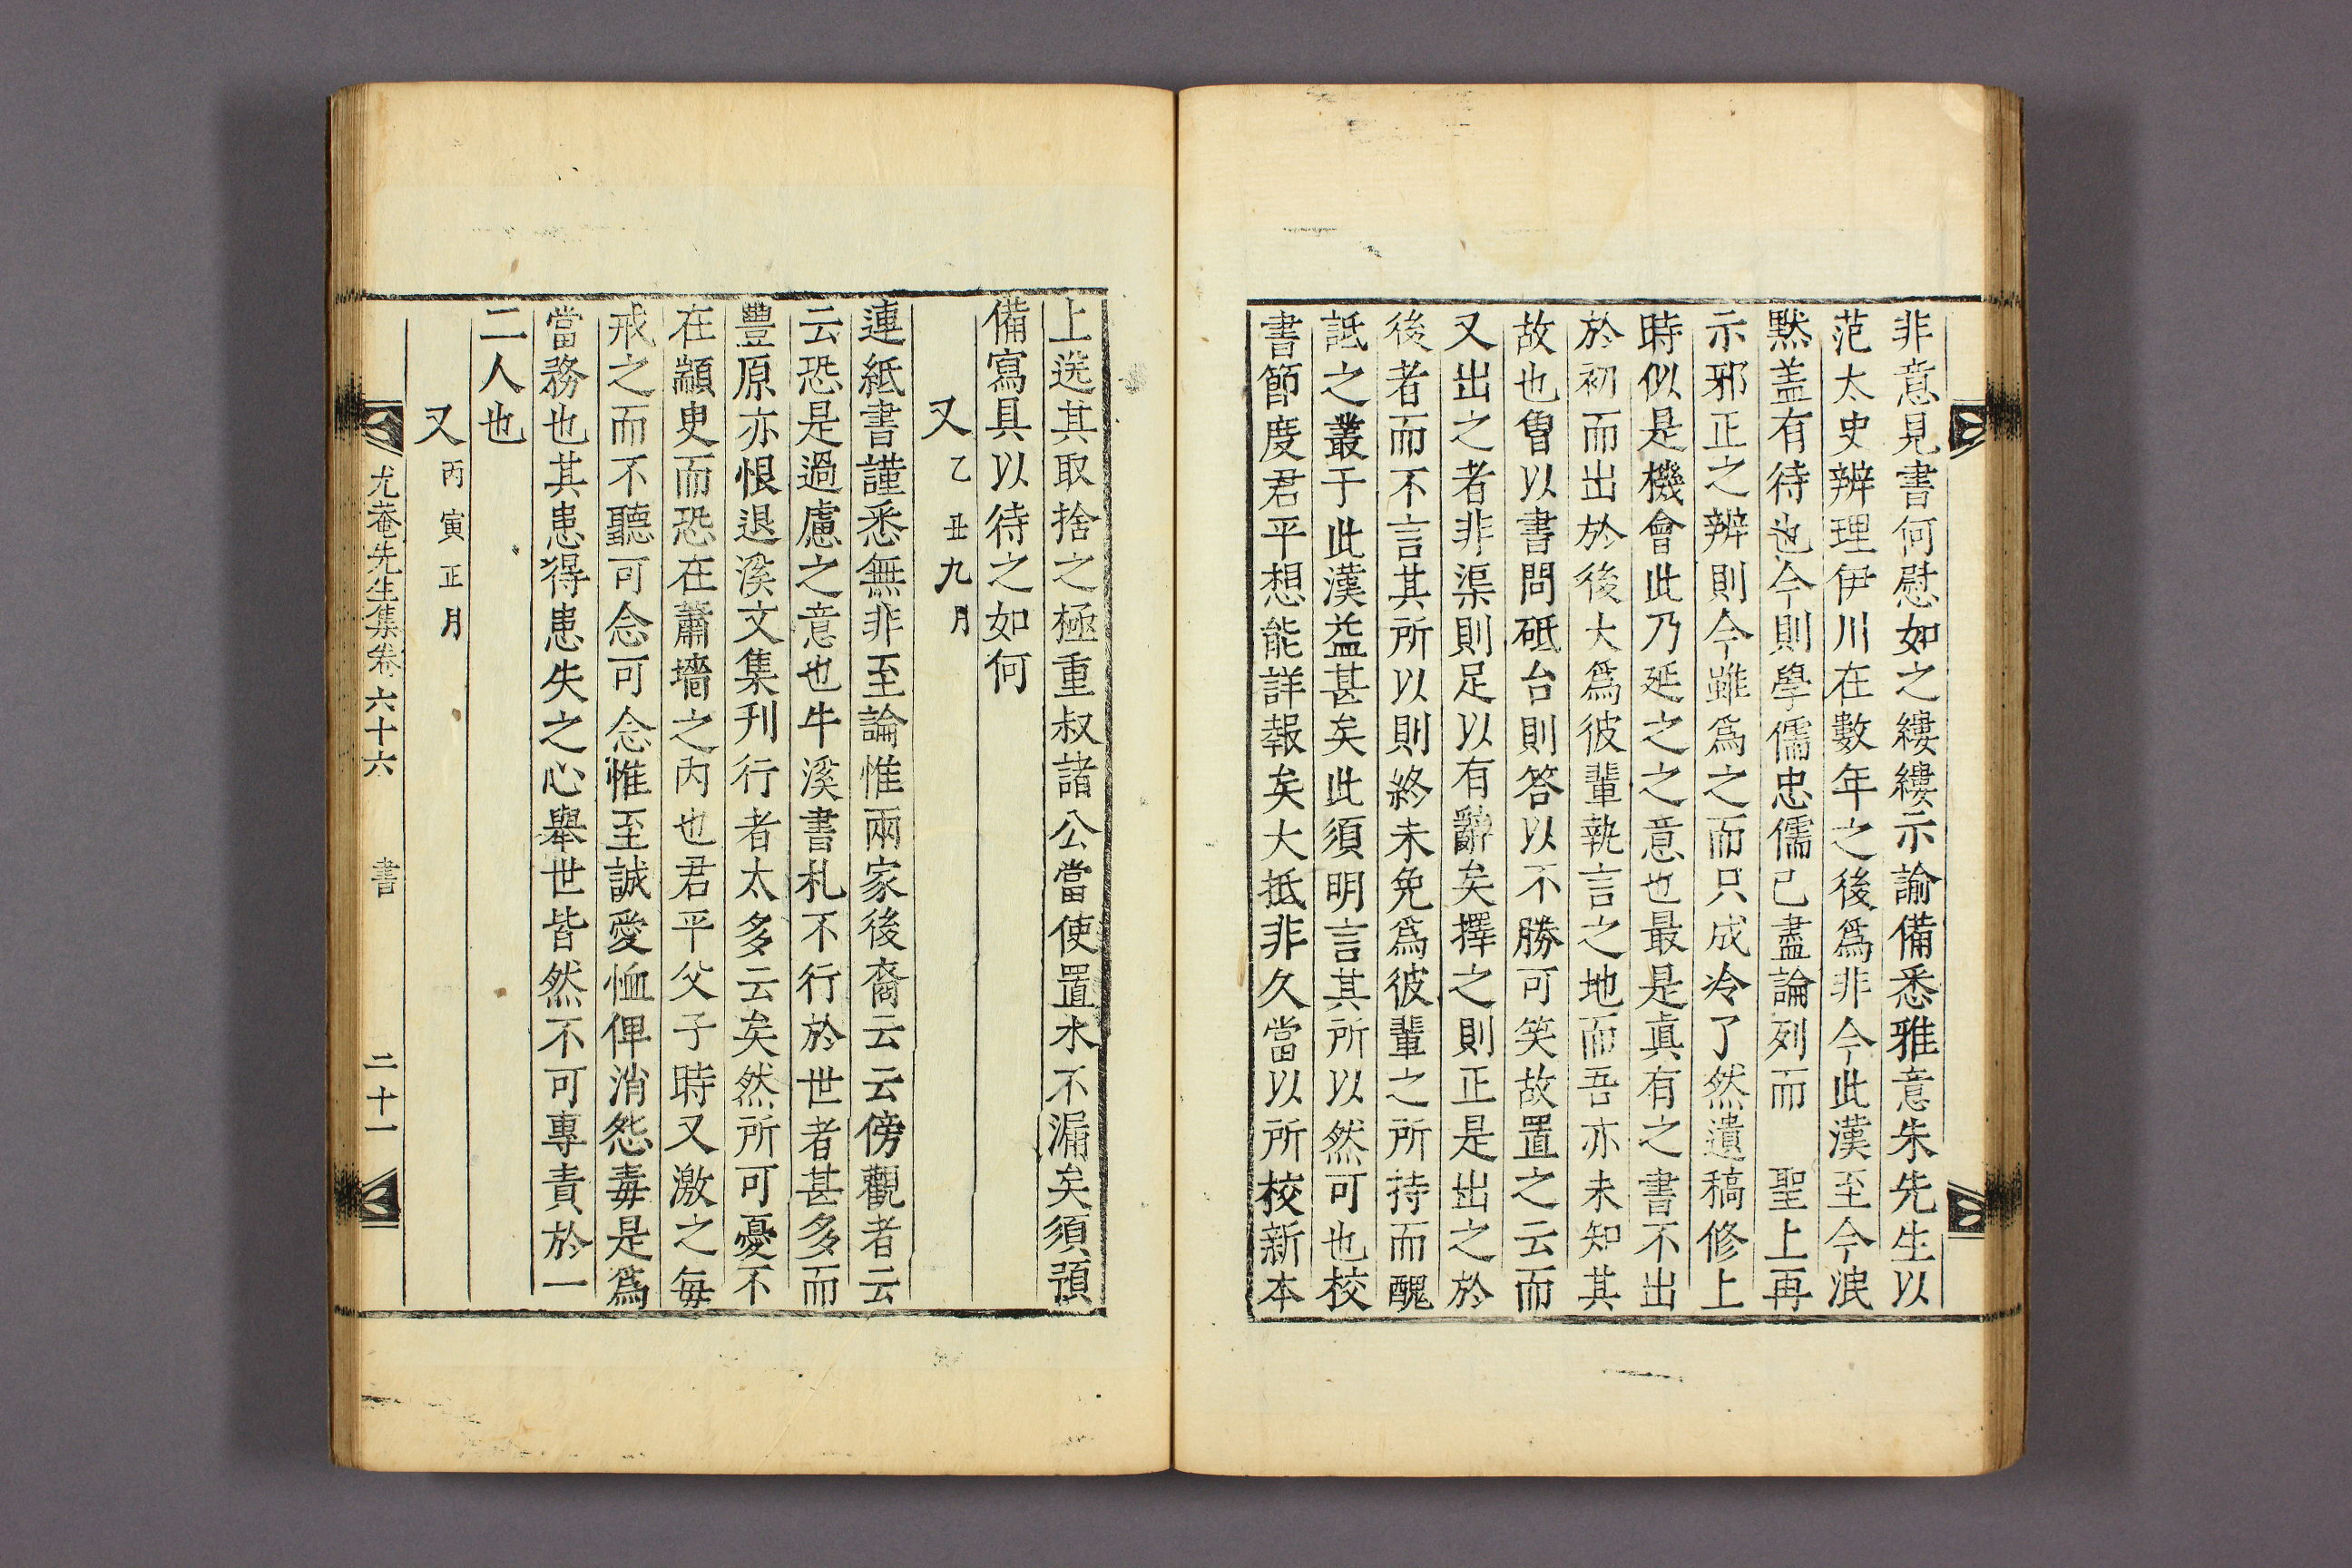 非意見書何慰如之縷縷示諭備悉雅意朱先生以
范太史辨理伊川在數年之後爲非今此漢至今泯
默盖有待也今則學儒忠儒已盡論列而 聖上再
示邪正之辨則今雖爲之而只成冷了然遺稿修上
時似是機會此乃延之之意也最是眞有之書不出
於初而出於後大爲彼輩執言之地而吾亦未知其
故也曾以書問砥台則答以不勝可笑故置之云而
又出之者非渠則足以有辭矣擇之則正是出之於
後者而不言其所以則終未免爲彼輩之所持而醜
詆之叢于此漢益甚矣此須明言其所以然可也校
書節度君平想能詳報矣大抵非久當以所校新本
上送其取捨之極重叔諸公當使置水不漏矣須預
備寫具以待之如何
又 乙丑九月
連紙書謹悉無非至論惟兩家後裔云云傍觀者云
云恐是過慮之意也牛溪書札不行於世者甚多而
豐原亦恨退溪文集刊行者太多云矣然所可憂不
在顓臾而恐在蕭墻之內也君平父子時又激之每
戒之而不聽可念可念惟至誠愛恤俾消怨毒是爲
當務也其患得患失之心舉世皆然不可專責於一
二人也
又 丙寅正月
尤菴先生集卷六十六 書 二十一